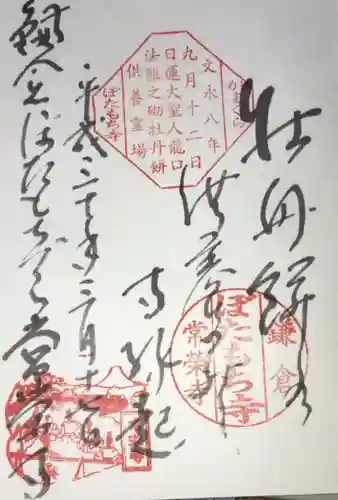 牡丹餅の
供養
寺縁起
平成三十年三月十七日
鎌倉ぼたもちでら常栄寺
文永八年
九月十二日
日蓮大聖人龍口
法難之砌牡丹餅
供養霊場
ぼたもち寺
鎌倉
ぼたもち寺
常栄寺